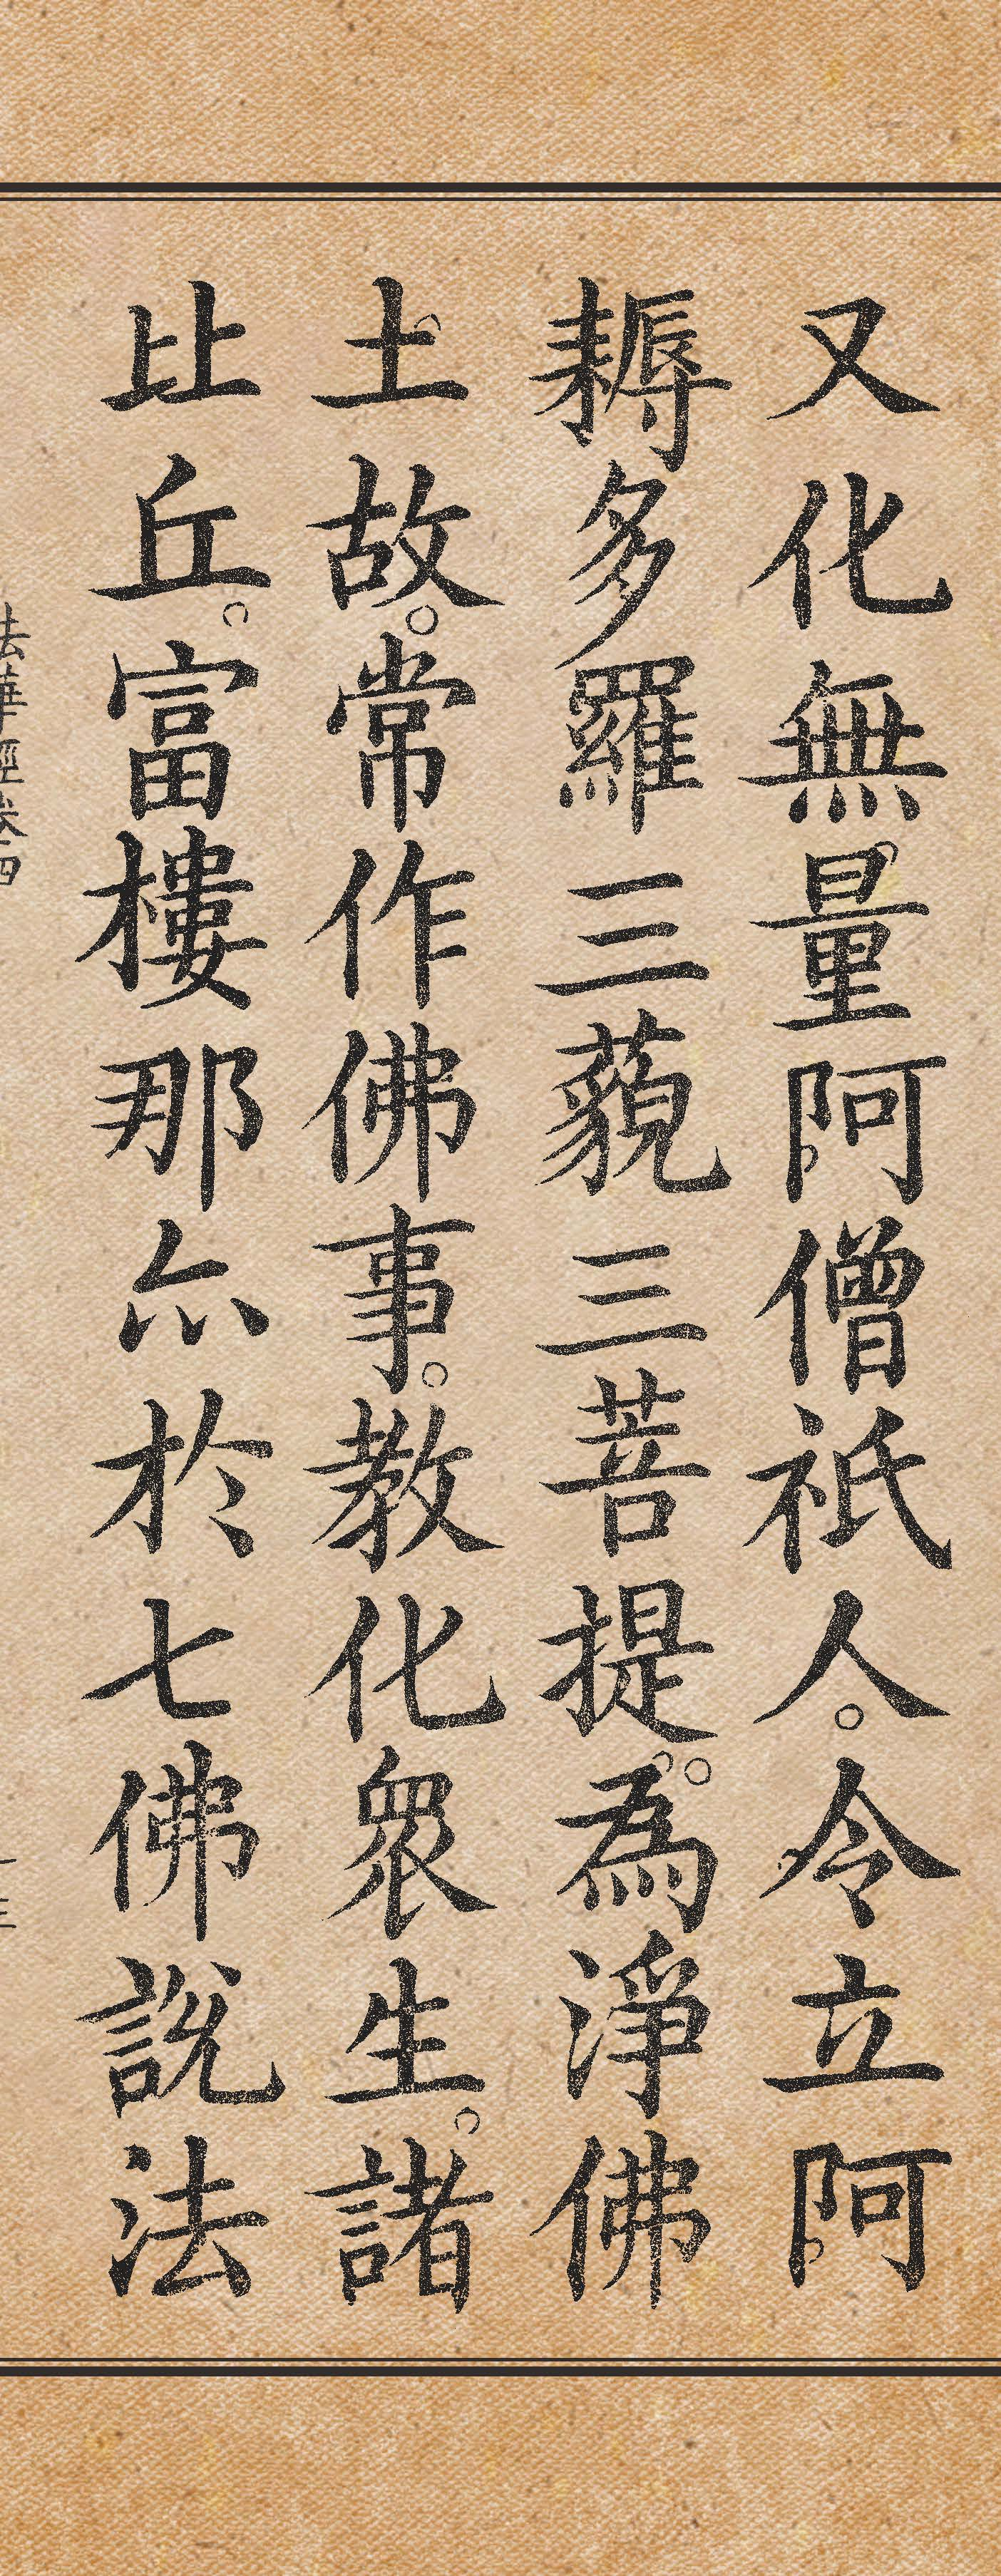 又化無量阿僧祇人。令立阿
耨多羅三藐三菩提。為淨佛
土故。常作佛事。教化眾生。諸
比丘。富樓那亦於七佛說法
法華經卷四